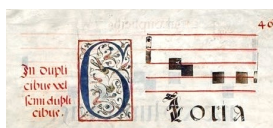 40
In dupli
cibus vel
semidupli
cibus.
G
loria